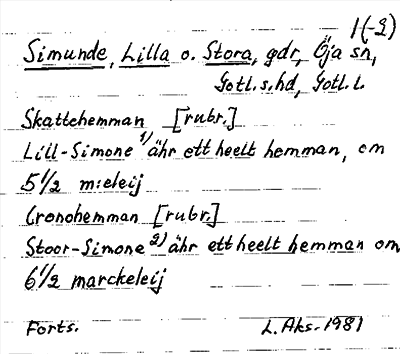 1(-2)
Simunde, Lilla o. Stora, gdr, Öja sn,
Gotl. s. hd, Gotl. l.
Skattehemman [rubr.]
Lill-Simone 1) ähr ett heelt hemman, om
5 1/2 m:eleij
Cronohemman [rubr.]
Stoor-Simone 2) ähr ett heelt hemman om
6 1/2 marckeleij
Forts. L. Aks. 1981